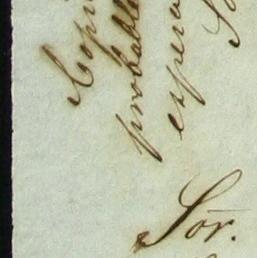 Copi
probable
espera
Sor.